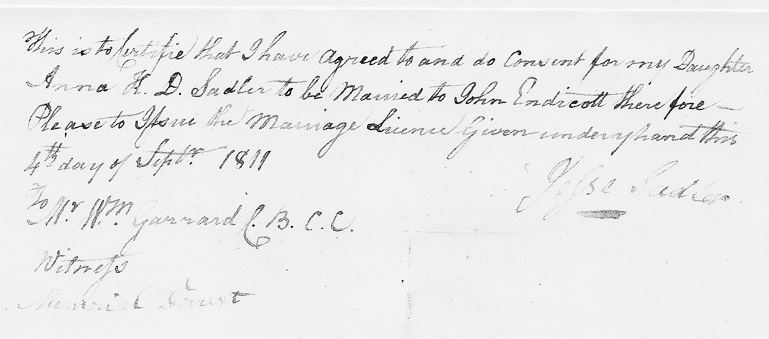 This is to Certifie that I have agreed to and do Consent for my Daughter
Anna K. D. Sadler to be Married to John Endicott therefore –
Please to Issue the Marriage Licence Given under my hand this
4th day of Septr 1811
Jesse Sadler
To
Mr. Wm. Garrard C. B. C. C.
Witness
Memorial Forrest